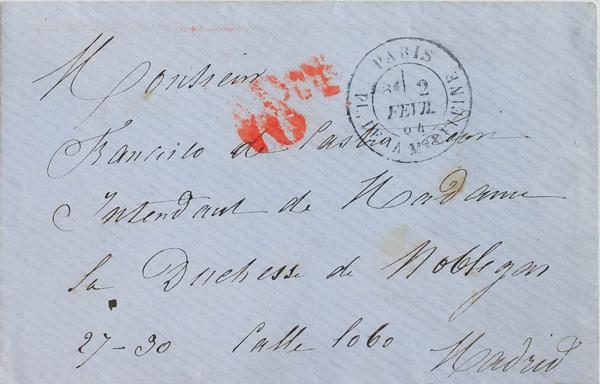 Monsieur
PARIS
PL. DE LA MADELEINE
2
FEVR.
64
10
Francisco de Castro
Intendant de Madame
la Duchesse de Noblejas
27-30 Calle Lobo Madrid